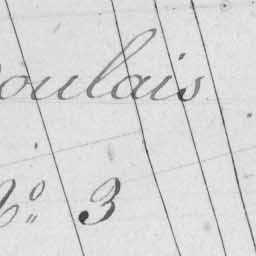 oulais
No 3